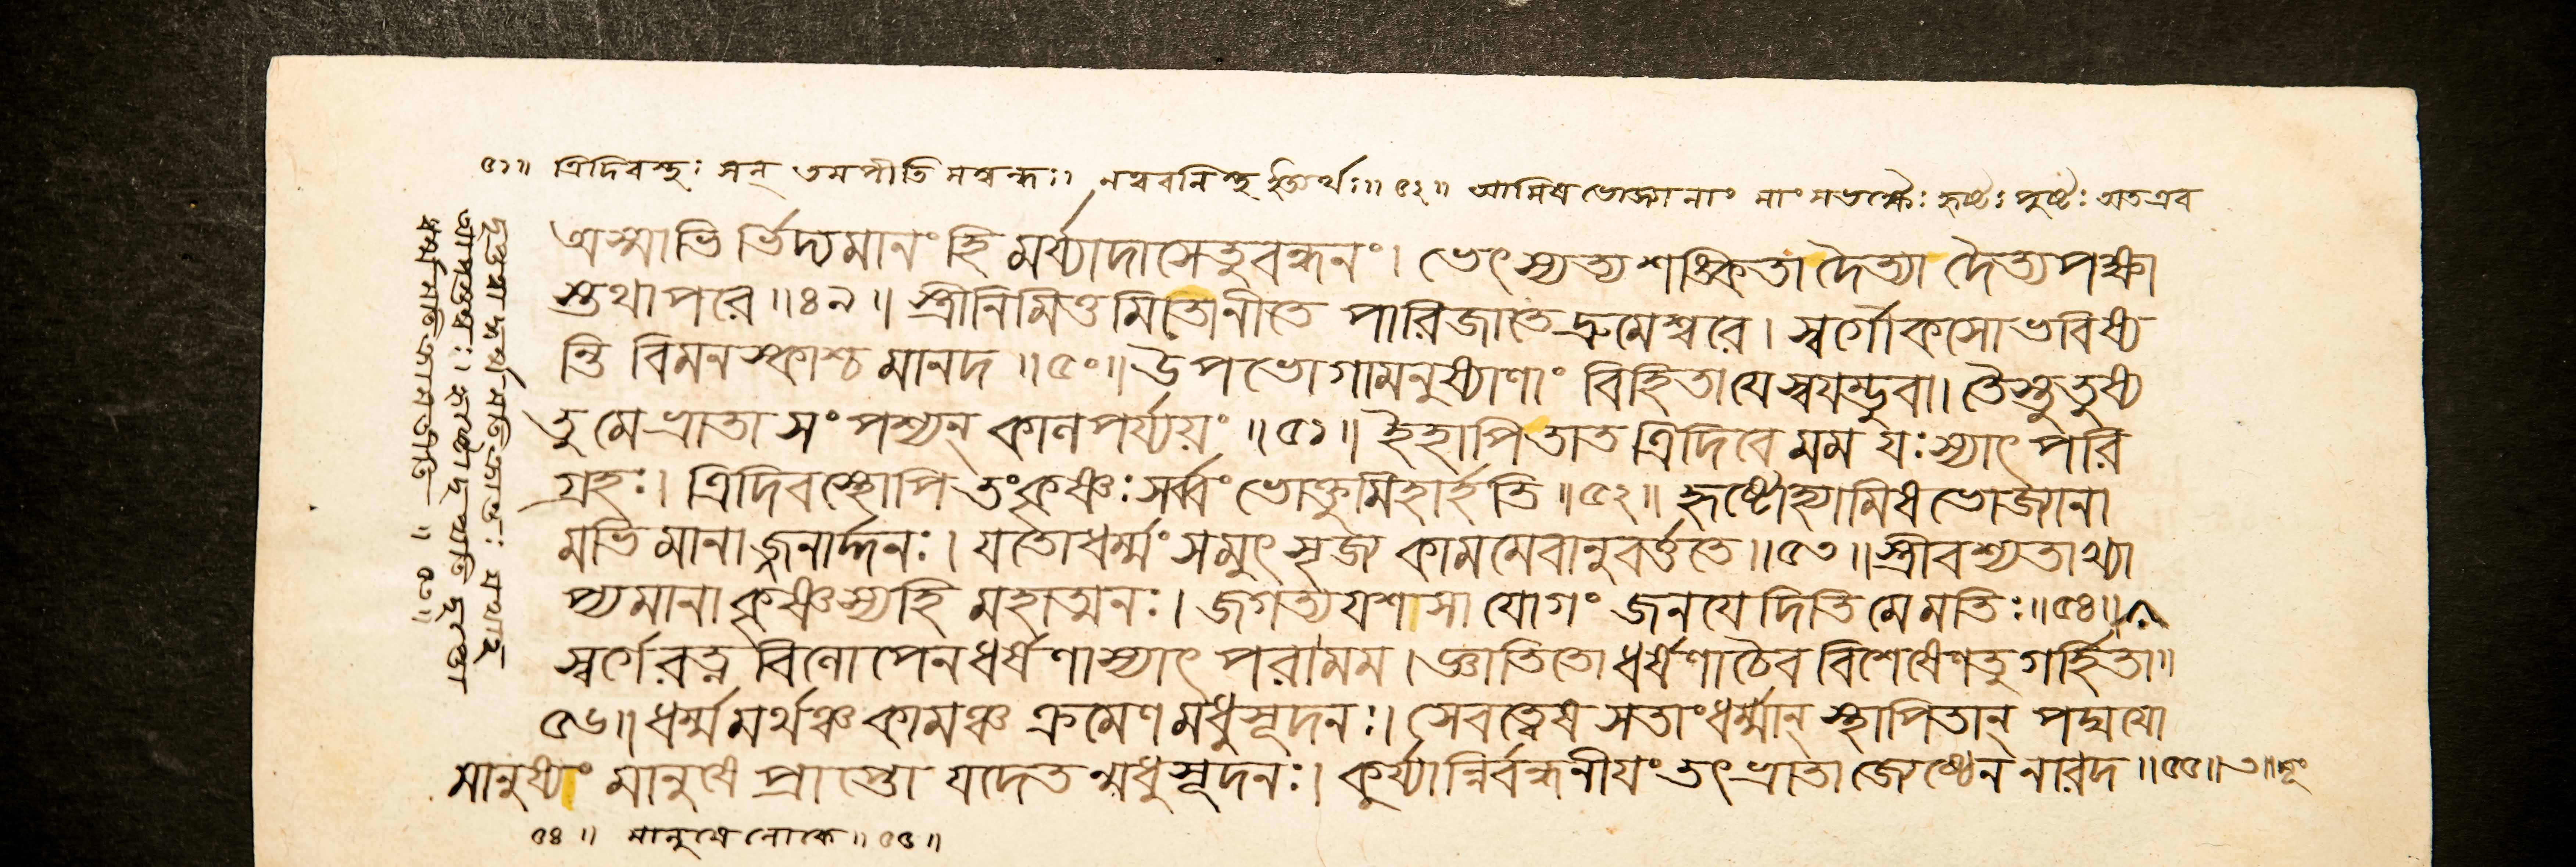 ৫১॥ ত্রিদিবস্থঃ সন্ তমপীতি সম্বন্ধঃ। নত্ববনিস্থ ইত্যর্থঃ॥ ৫২॥ আমিষভোজ্যানাং মাংসভক্ষ্যৈঃ হৃষ্টঃ পুষ্টঃ অতএব
অস্মাভি র্ভিদ্যমানং হি মর্য্যাদাসেতুবন্ধনং। ভেৎস্যত্যশঙ্কিতা দৈত্যা দৈত্যপক্ষা
স্তথাপরে॥৪৯॥ স্ত্রীনিমিত্তমিতোনীতে পারিজাতে দ্রুমেশ্বরে। স্বর্গৌকসোভবিষ্য
ন্তি বিমনস্কাশ্চ মানদ॥৫০॥ উপভোগামনুষ্যাণাং বিহিতা যে স্বয়ম্ভুবা। তৈস্তুতুষ্য
তু মে ভ্রাতা সংপশ্যন্ কালপর্য্যয়ং॥৫১॥ ইহাপি তাত ত্রিদিবে মম যঃ স্যাৎ পরি
গ্রহঃ। ত্রিদিবস্থোপি তং কৃষ্ণঃ সর্ব্বং ভোক্তুমিহার্হতি॥৫২॥ হৃষ্টোহ্যামিষভোজ্যানা
মভিমানাজ্জনার্দ্দনঃ। যতোধর্ম্মং সমুৎসৃজ্য কামমেবানুবর্ত্ততে॥৫৩॥ স্ত্রীবশ্যতাখ্যা
প্যমানা কৃষ্ণস্য হি মহাত্মনঃ। জগত্যযশসা যোগং জনয়েদিতি মে মতিঃ॥৫৪॥
স্বর্গেরত্ন বিলোপেন ধর্ষণা স্যাৎ পরা মম। জ্ঞাতিতো ধর্ষণাচৈব বিশেষেণ তু গর্হিতা॥
৫৬॥ ধর্ম্মমর্থঞ্চ কামঞ্চ ক্রমেণ মধুসূদনঃ। সেবত্বেষ সতাং ধর্ম্মান্ স্থাপিতান্ পদ্মযো
মানুষ্যং মানুষে প্রাপ্তো যদেতন্মধুসূদনঃ। কুর্য্যান্নির্বন্ধনীয়ং তৎ ভ্রাতা জ্যেষ্ঠেন নারদ॥৫৫॥
৫৪॥ মানুষে লোকে॥৫৫॥